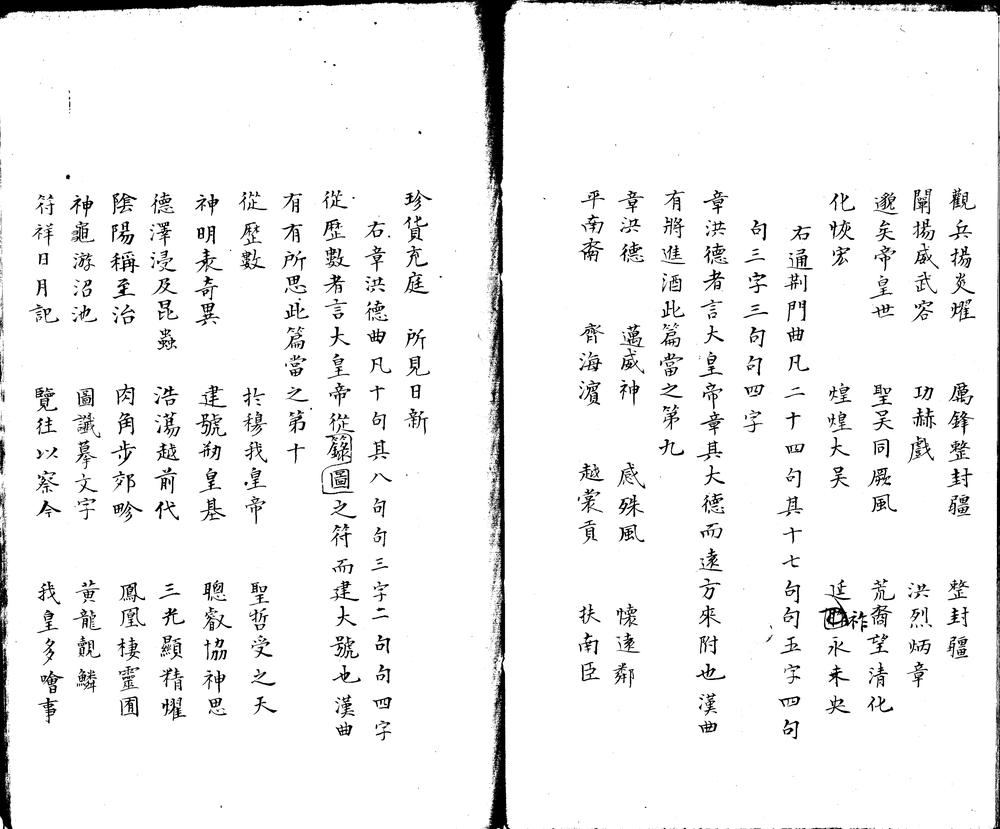 觀兵揚炎耀　厲鋒整封疆　整封疆
闡揚威武容　功赫戲　洪烈炳章
邈矣帝皇世　聖吳同厥風　荒裔望清化
化恢宏　煌煌大吳　延祚永未央
右通荆門曲凡二十四句其十七句句五字四句
句三字三句句四字
章洪德者言大皇帝章其大德而遠方來附也漢曲
有將進酒此篇當之第九
章洪德　邁威神　感殊風　懷遠鄰
平南裔　齊海濱　越裳貢　扶南臣
珍貨充庭　所見日新
右章洪德曲凡十句其八句句三字二句句四字
從歷數者言大皇帝從籙圖之符而建大號也漢曲
有有所思此篇當之第十
從歷數　於穆我皇帝　聖哲受之天
神明表奇異　建號剏皇基　聰叡協神思
德澤浸及昆蟲　浩蕩越前代　三光顯精耀
陰陽稱至治　肉角步郊畛　鳳凰棲靈囿
神龜游沼池　圖讖摹文字　黃龍覿鱗
符祥日月記　覽往以察今　我皇多噲事